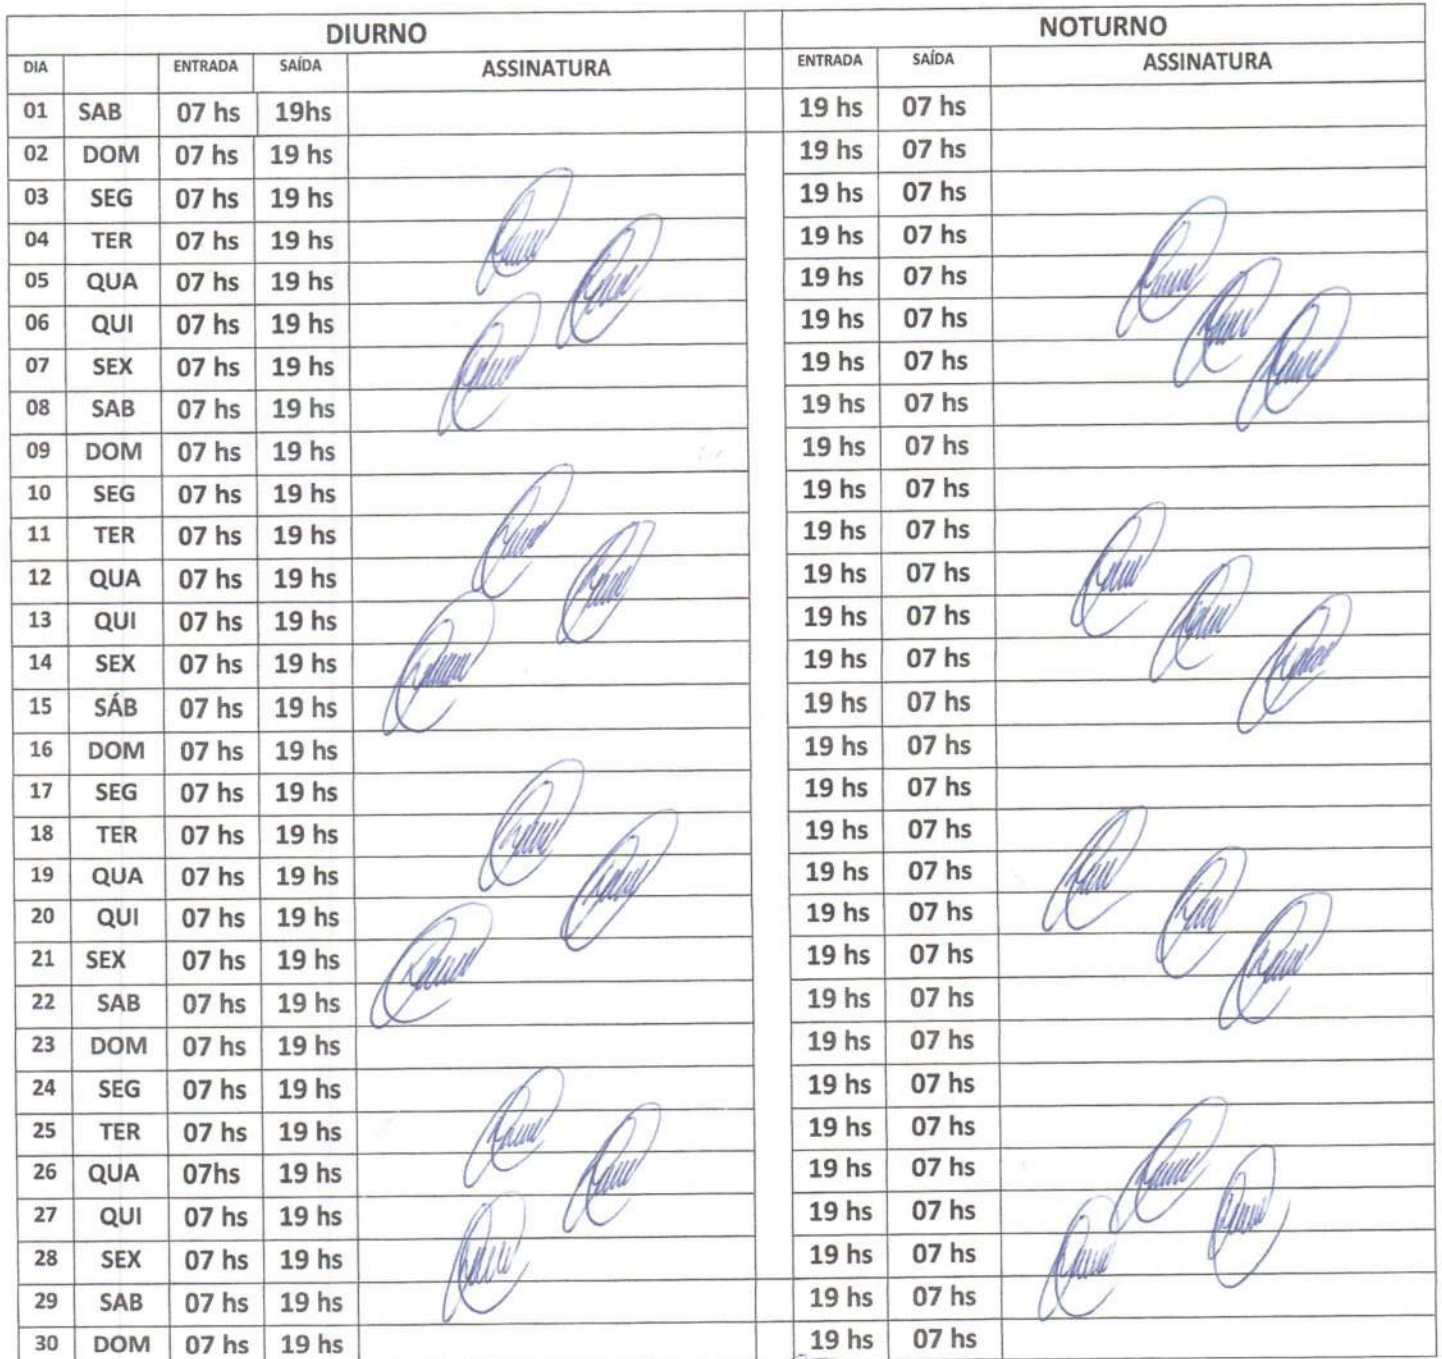 DIURNO NOTURNO
DIA ENTRADA SAÍDA ASSINATURA ENTRADA SAÍDA ASSINATURA
01 SAB 07 hs 19hs 19 hs 07 hs
02 DOM 07 hs 19 hs 19 hs 07 hs
03 SEG 07 hs 19 hs 19 hs 07 hs
04 TER 07 hs 19 hs 19 hs 07 hs
05 QUA 07 hs 19 hs 19 hs 07 hs
06 QUI 07 hs 19 hs 19 hs 07 hs
07 SEX 07 hs 19 hs 19 hs 07 hs
08 SAB 07 hs 19 hs 19 hs 07 hs
09 DOM 07 hs 19 hs 19 hs 07 hs
10 SEG 07 hs 19 hs 19 hs 07 hs
11 TER 07 hs 19 hs 19 hs 07 hs
12 QUA 07 hs 19 hs 19 hs 07 hs
13 QUI 07 hs 19 hs 19 hs 07 hs
14 SEX 07 hs 19 hs 19 hs 07 hs
15 SÁB 07 hs 19 hs 19 hs 07 hs
16 DOM 07 hs 19 hs 19 hs 07 hs
17 SEG 07 hs 19 hs 19 hs 07 hs
18 TER 07 hs 19 hs 19 hs 07 hs
19 QUA 07 hs 19 hs 19 hs 07 hs
20 QUI 07 hs 19 hs 19 hs 07 hs
21 SEX 07 hs 19 hs 19 hs 07 hs
22 SAB 07 hs 19 hs 19 hs 07 hs
23 DOM 07 hs 19 hs 19 hs 07 hs
24 SEG 07 hs 19 hs 19 hs 07 hs
25 TER 07 hs 19 hs 19 hs 07 hs
26 QUA 07hs 19 hs 19 hs 07 hs
27 QUI 07 hs 19 hs 19 hs 07 hs
28 SEX 07 hs 19 hs 19 hs 07 hs
29 SAB 07 hs 19 hs 19 hs 07 hs
30 DOM 07 hs 19 hs 19 hs 07 hs